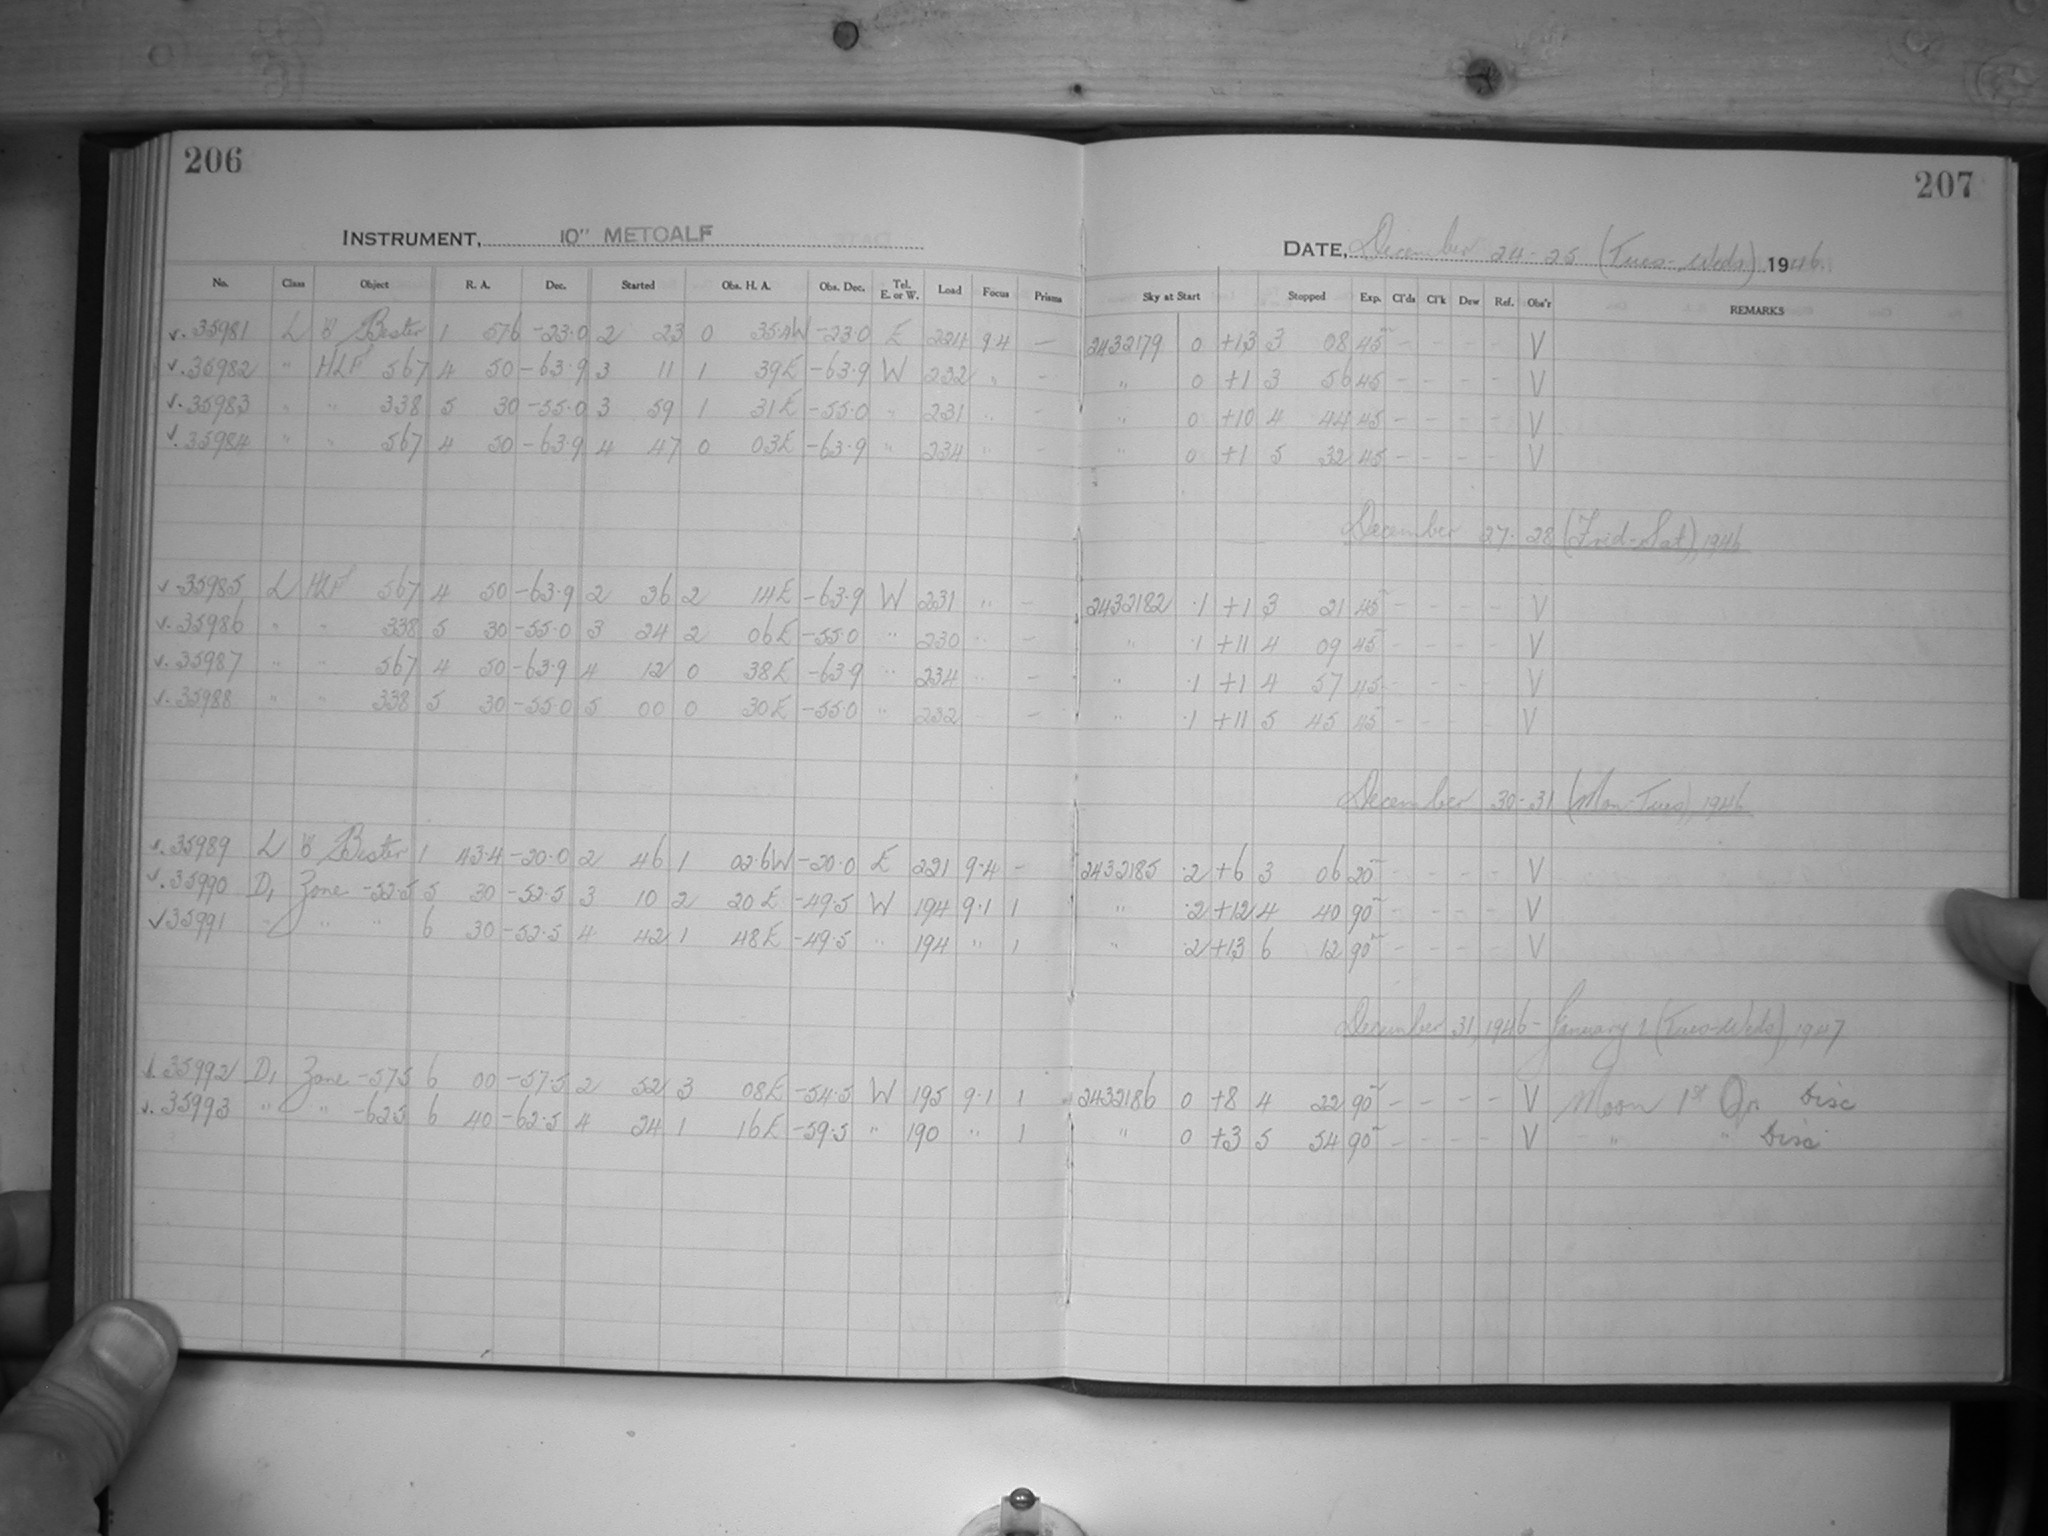 206
207
INSTRUMENT, 10" METCALF
DATE, December 24-25 (Tues-Weds) 1946.
No. Class Object R. A. Dec. Started Obs. H. A. Obs. Dec. Tel. E. or W. Load Focus Prisms Sky at Start Stopped Exp. Cl'ds Cl'k Dew Ref. Obs'r REMARKS
v. 35981 L Bester 1 57.6 -23.0 2 23 0 -23.0 E 224 9.4 - 2432179 0 +13 3 08 45 - - - - V
v. 35982 " HLF 567 4 50 -63.9 3 11 1 39E -63.9 W 232 " - " 0 +1 3 56 45 - - - - V
v. 35983 " " 338 5 30 -55.0 3 59 1 31E -55.0 " 231 " - " 0 +10 4 44 45 - - - - V
v. 35984 " " 567 4 50 -63.9 4 47 0 03E -63.9 " 234 " - " 0 +1 5 32 45 - - - - V
December 27-28 (Frid-Sat), 1946
v. 35985 L HLF 567 4 50 -63.9 2 36 2 14E -63.9 W 231 " - 2432182 .1 +1 3 21 45 - - - - V
v. 35986 " " 338 5 30 -55.0 3 24 2 06E -55.0 " 230 " - " .1 +11 4 09 45 - - - - V
v. 35987 " " 567 4 50 -63.9 4 12 0 38E -63.9 " 234 " - " .1 +1 4 57 45 - - - - V
v. 35988 " " 338 5 30 -55.0 5 00 0 30E -55.0 " 232 - " .1 +11 5 45 45 - - - - V
December 30-31 (Mon-Tues), 1946
v. 35989 L Bester 1 43.4 -20.0 2 46 1 02.6W -20.0 E 221 9.4 - 2432185 .2 +6 3 06 20 - - - - V
v. 35990 D, Zone -52.5 5 30 -52.5 3 10 2 20E -49.5 W 194 9.1 1 " .2 +12 4 40 90 - - - - V
v 35991 " " " 6 30 -52.5 4 42 1 48E -49.5 " 194 " 1 " .2 +13 6 12 90 - - - - V
December 31, 1946 - January 1 (Tues-Weds), 1947
v. 35992 D, Zone -57.5 6 00 -57.5 2 52 3 08E -54.5 W 195 9.1 1 2432186 0 +8 4 22 90 - - - - V Moon 1st Qr. Disc
v. 35993 " " -62.5 6 40 -62.5 4 24 1 16E -59.5 " 190 " 1 " 0 +3 5 54 90 - - - - V " " Disc